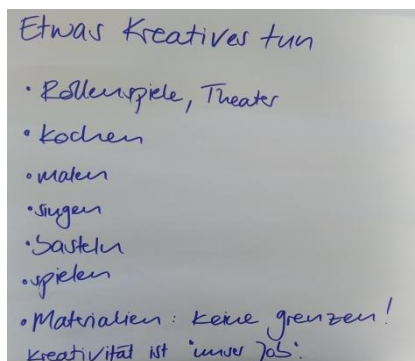 Etwas Kreatives tun
• Rollenspiele, Theater
• kochen
• malen
• singen
• basteln
• spielen
• Materialien: keine grenzen!
Kreativität ist "unser Job".